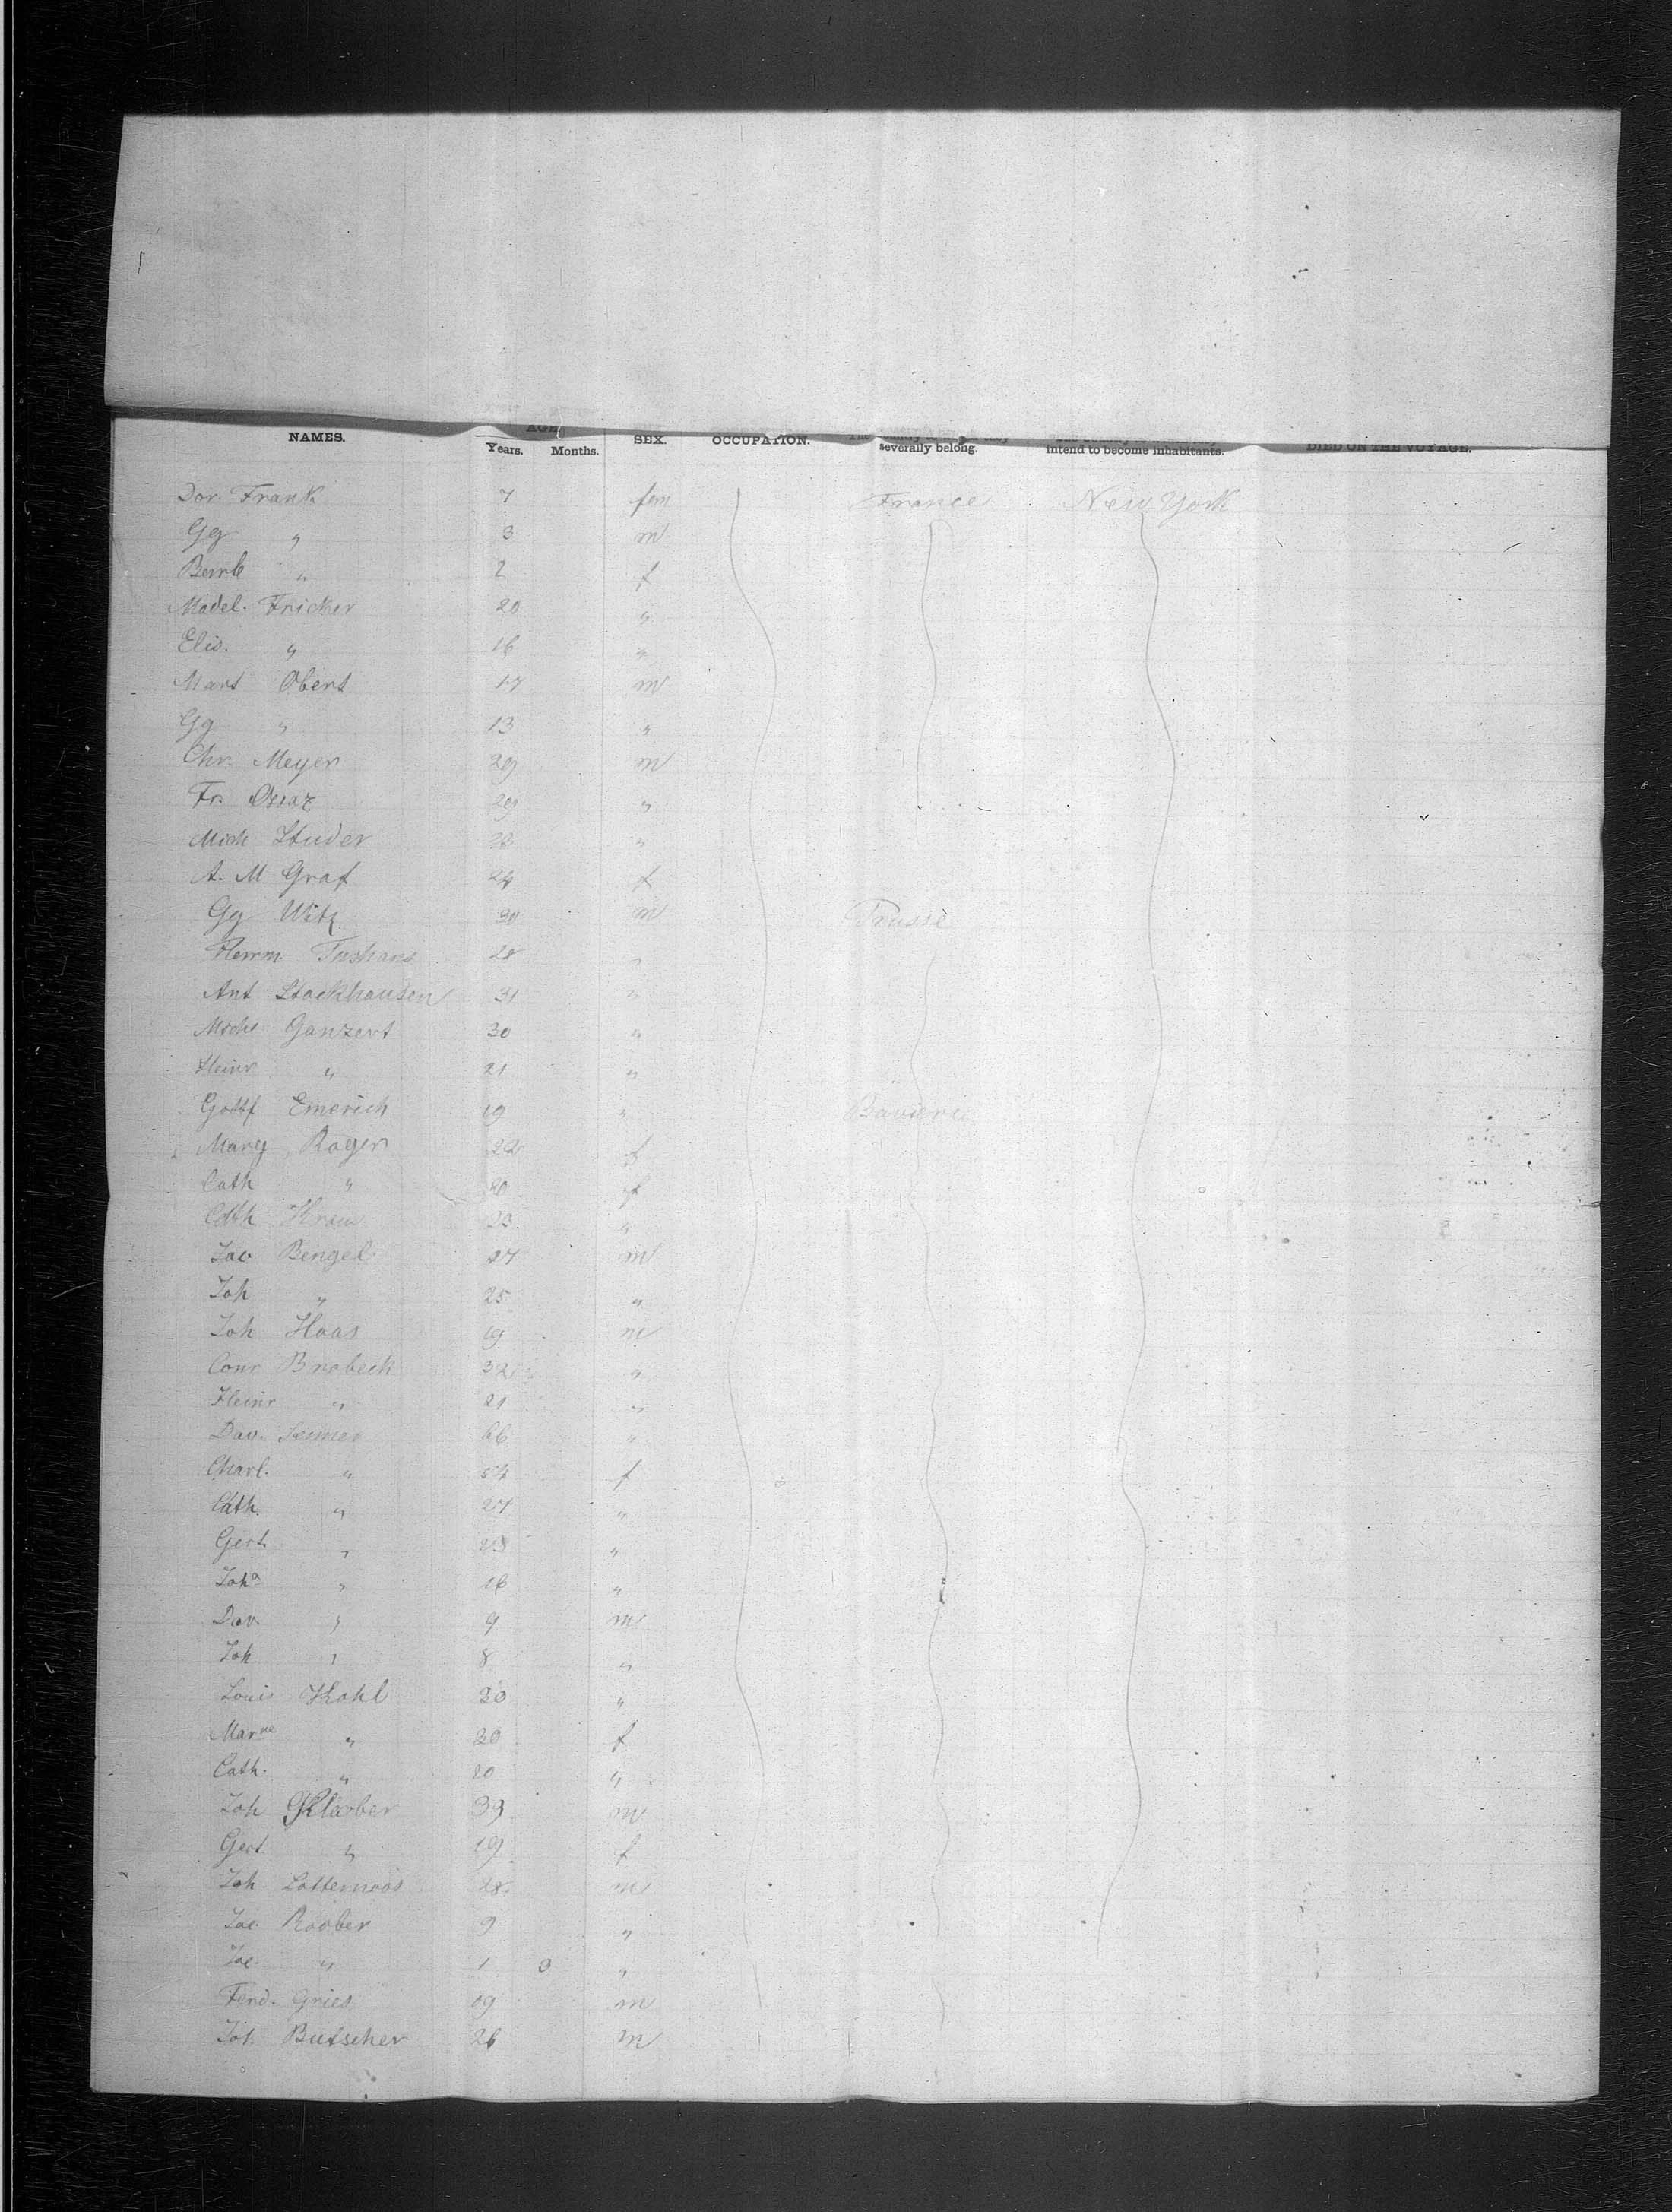 NAMES. AGE Years. Months. SEX. OCCUPATION. severally belong. intend to become inhabitants. DIED ON THE VOYAGE.
Dor Frank 7 fem France New York
Gg " 3 m
Barb " 2 f
Madel. Fricker 20 "
Elis. " 16 "
Mart Obert 17 m
Gg " 13 "
Chr. Meyer 29 m
Fr. 29 "
Mich Studer 23 "
A. M Graf 24 f
Gg Witz 30 m Prusse
Herrm. 28 "
Ant Stockhausen 31 "
Mich Ganzert 30 "
Heinr " 21 "
Gottf Emerich 19 " Baviere
Marg Roger 22 f
Cath " f
Cath 23 "
Jac Bengel 27 m
Joh " 25 "
Joh Haas 19 m
Conr Brobeck 32 "
Heinr " 21 "
Dav. 66 "
Charl. " 54 f
Cath. " 27 "
Gert. " 23 "
Joha " 16 "
Dav. " 9 m
Joh " 8 "
Louis Kohl 30 "
Marne " 20 f
Cath. " 20 "
Joh Klarber 39 m
Gert " 19 f
Joh 28 m
Jac. Roober 9 "
Jac. " 1 3 "
Ferd. Gries 19 m
Joh Butscher 26 m